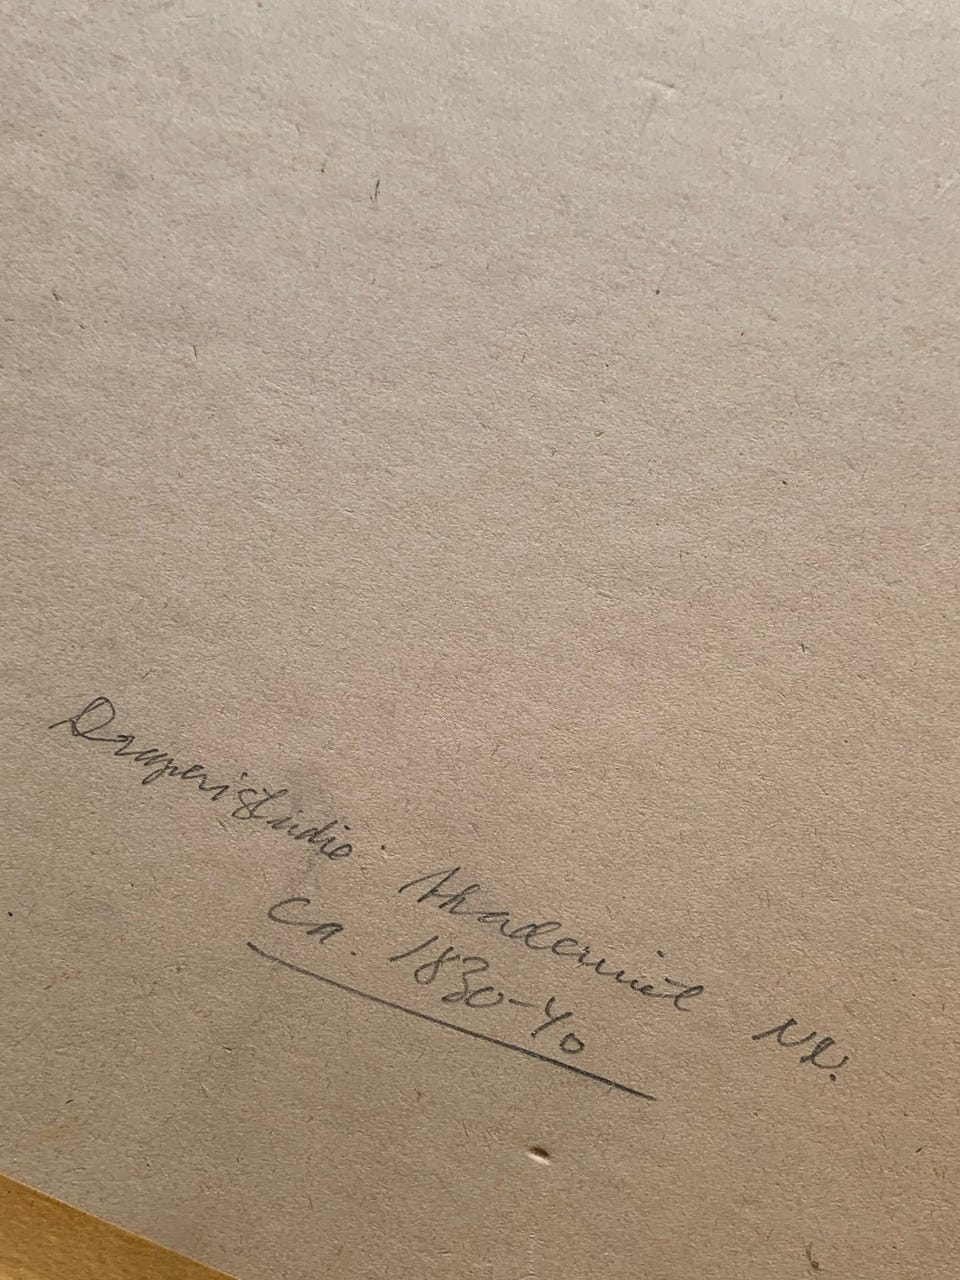 Draperistudie. Akademiet Nl.
ca. 1830-40